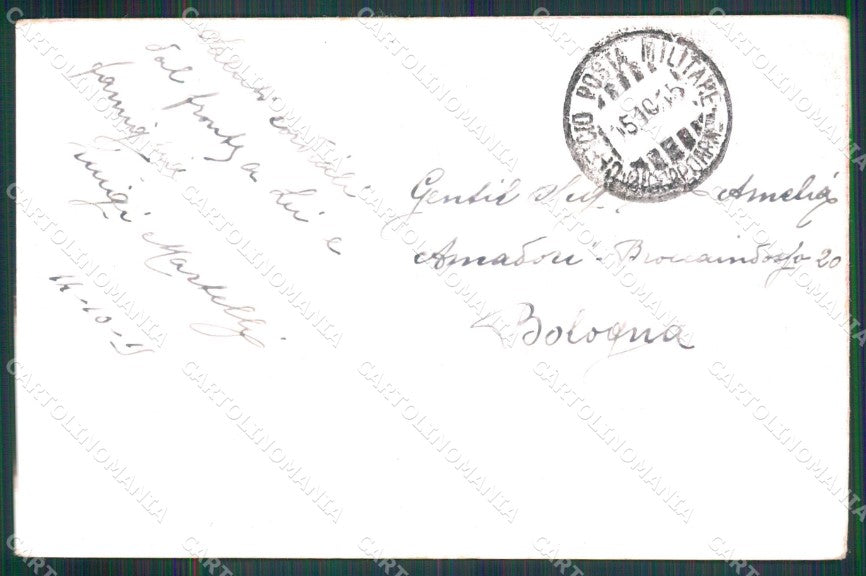 Saluti cordiali
dal fronte a Lei e
famiglia
Luigi Martelli
14-10-15
POSTA MILITARE
15.10.15
Gentil Sig. Amelia
Amadori - Broccaindosso 20
Bologna
CARTOLINOMANIA